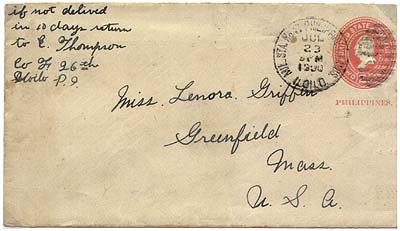 if not delived
in 10 days return
to E. Thompson
Co F 26th
Iloilo P.I.
MIL. STA.
JUL
23
PM
1900
ILOILO
STATE
PHILIPPINES.
Miss. Lenora Griffin
Greenfield
Mass.
U. S. A.